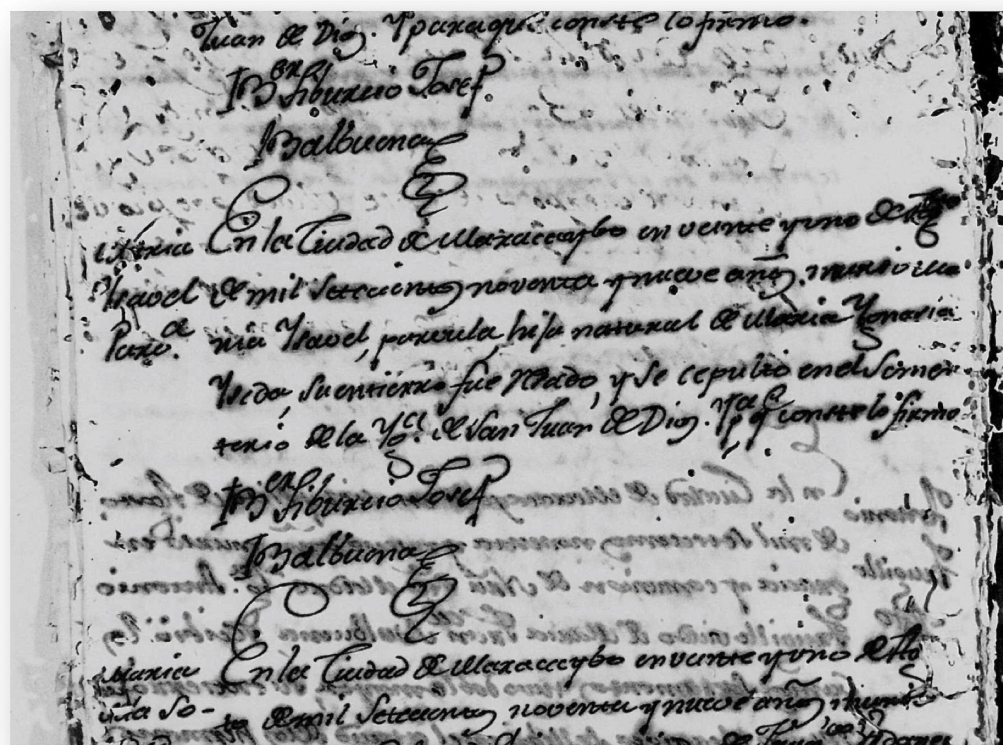 Juan de Dios. Y para que conste lo firmo.
Br. Tiburcio Josef
Balbuena
Maria En la Ciudad de Maracaybo en veinte y uno de Ago
Ysavel de mil setecientos noventa y nueve años. murio Ma
Parv.a ria Ysavel, parvula, hija natural de Maria Ygnacia
su entierro fue rezado, y se cepulto en el Simen-
terio de la Yg.a de San Juan de Dios. Y p.a q.e conste lo firmo
Br. Tiburcio Josef
Balbuena
Maria En la Ciudad de Maracaybo en veinte y uno de Ago
de mil setecientos noventa y nueve años murio